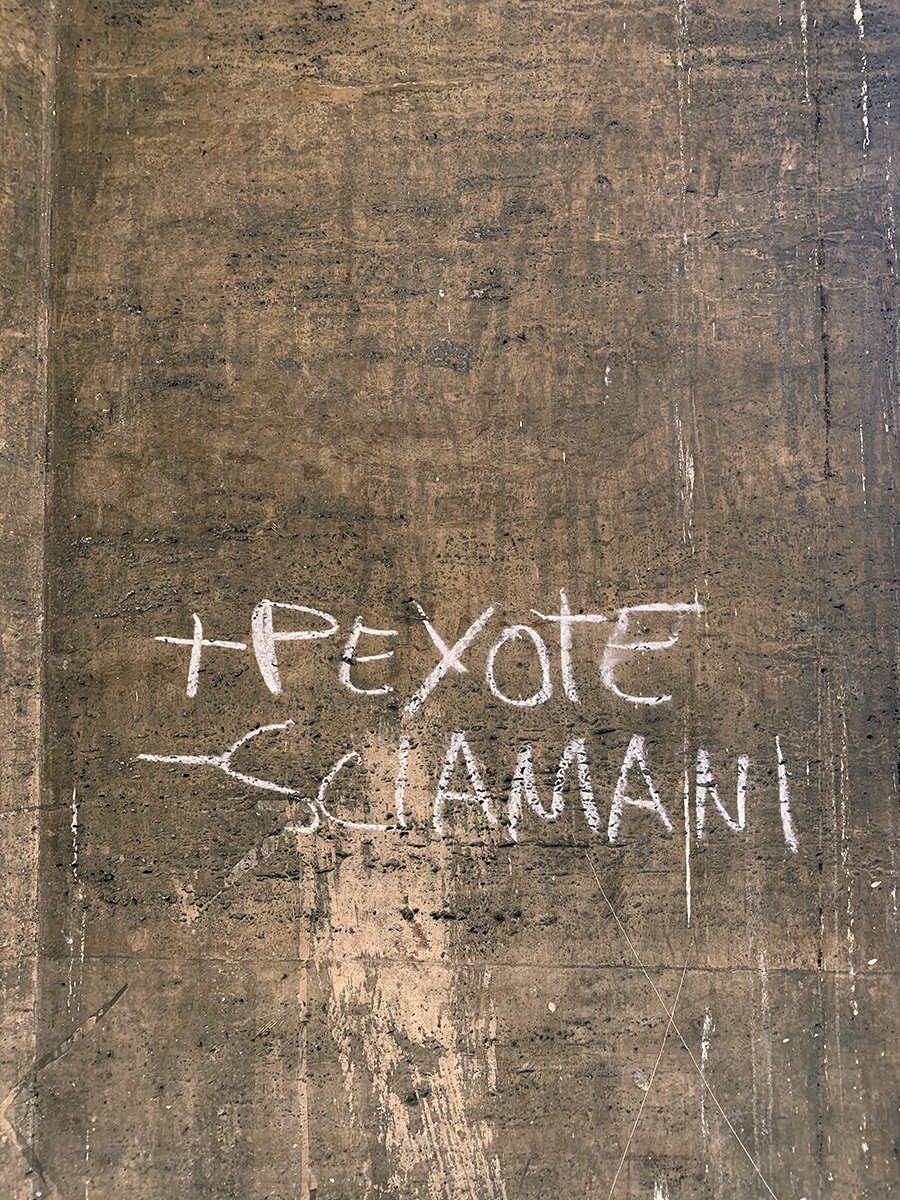 +PEYOTE
-SCIAMANI